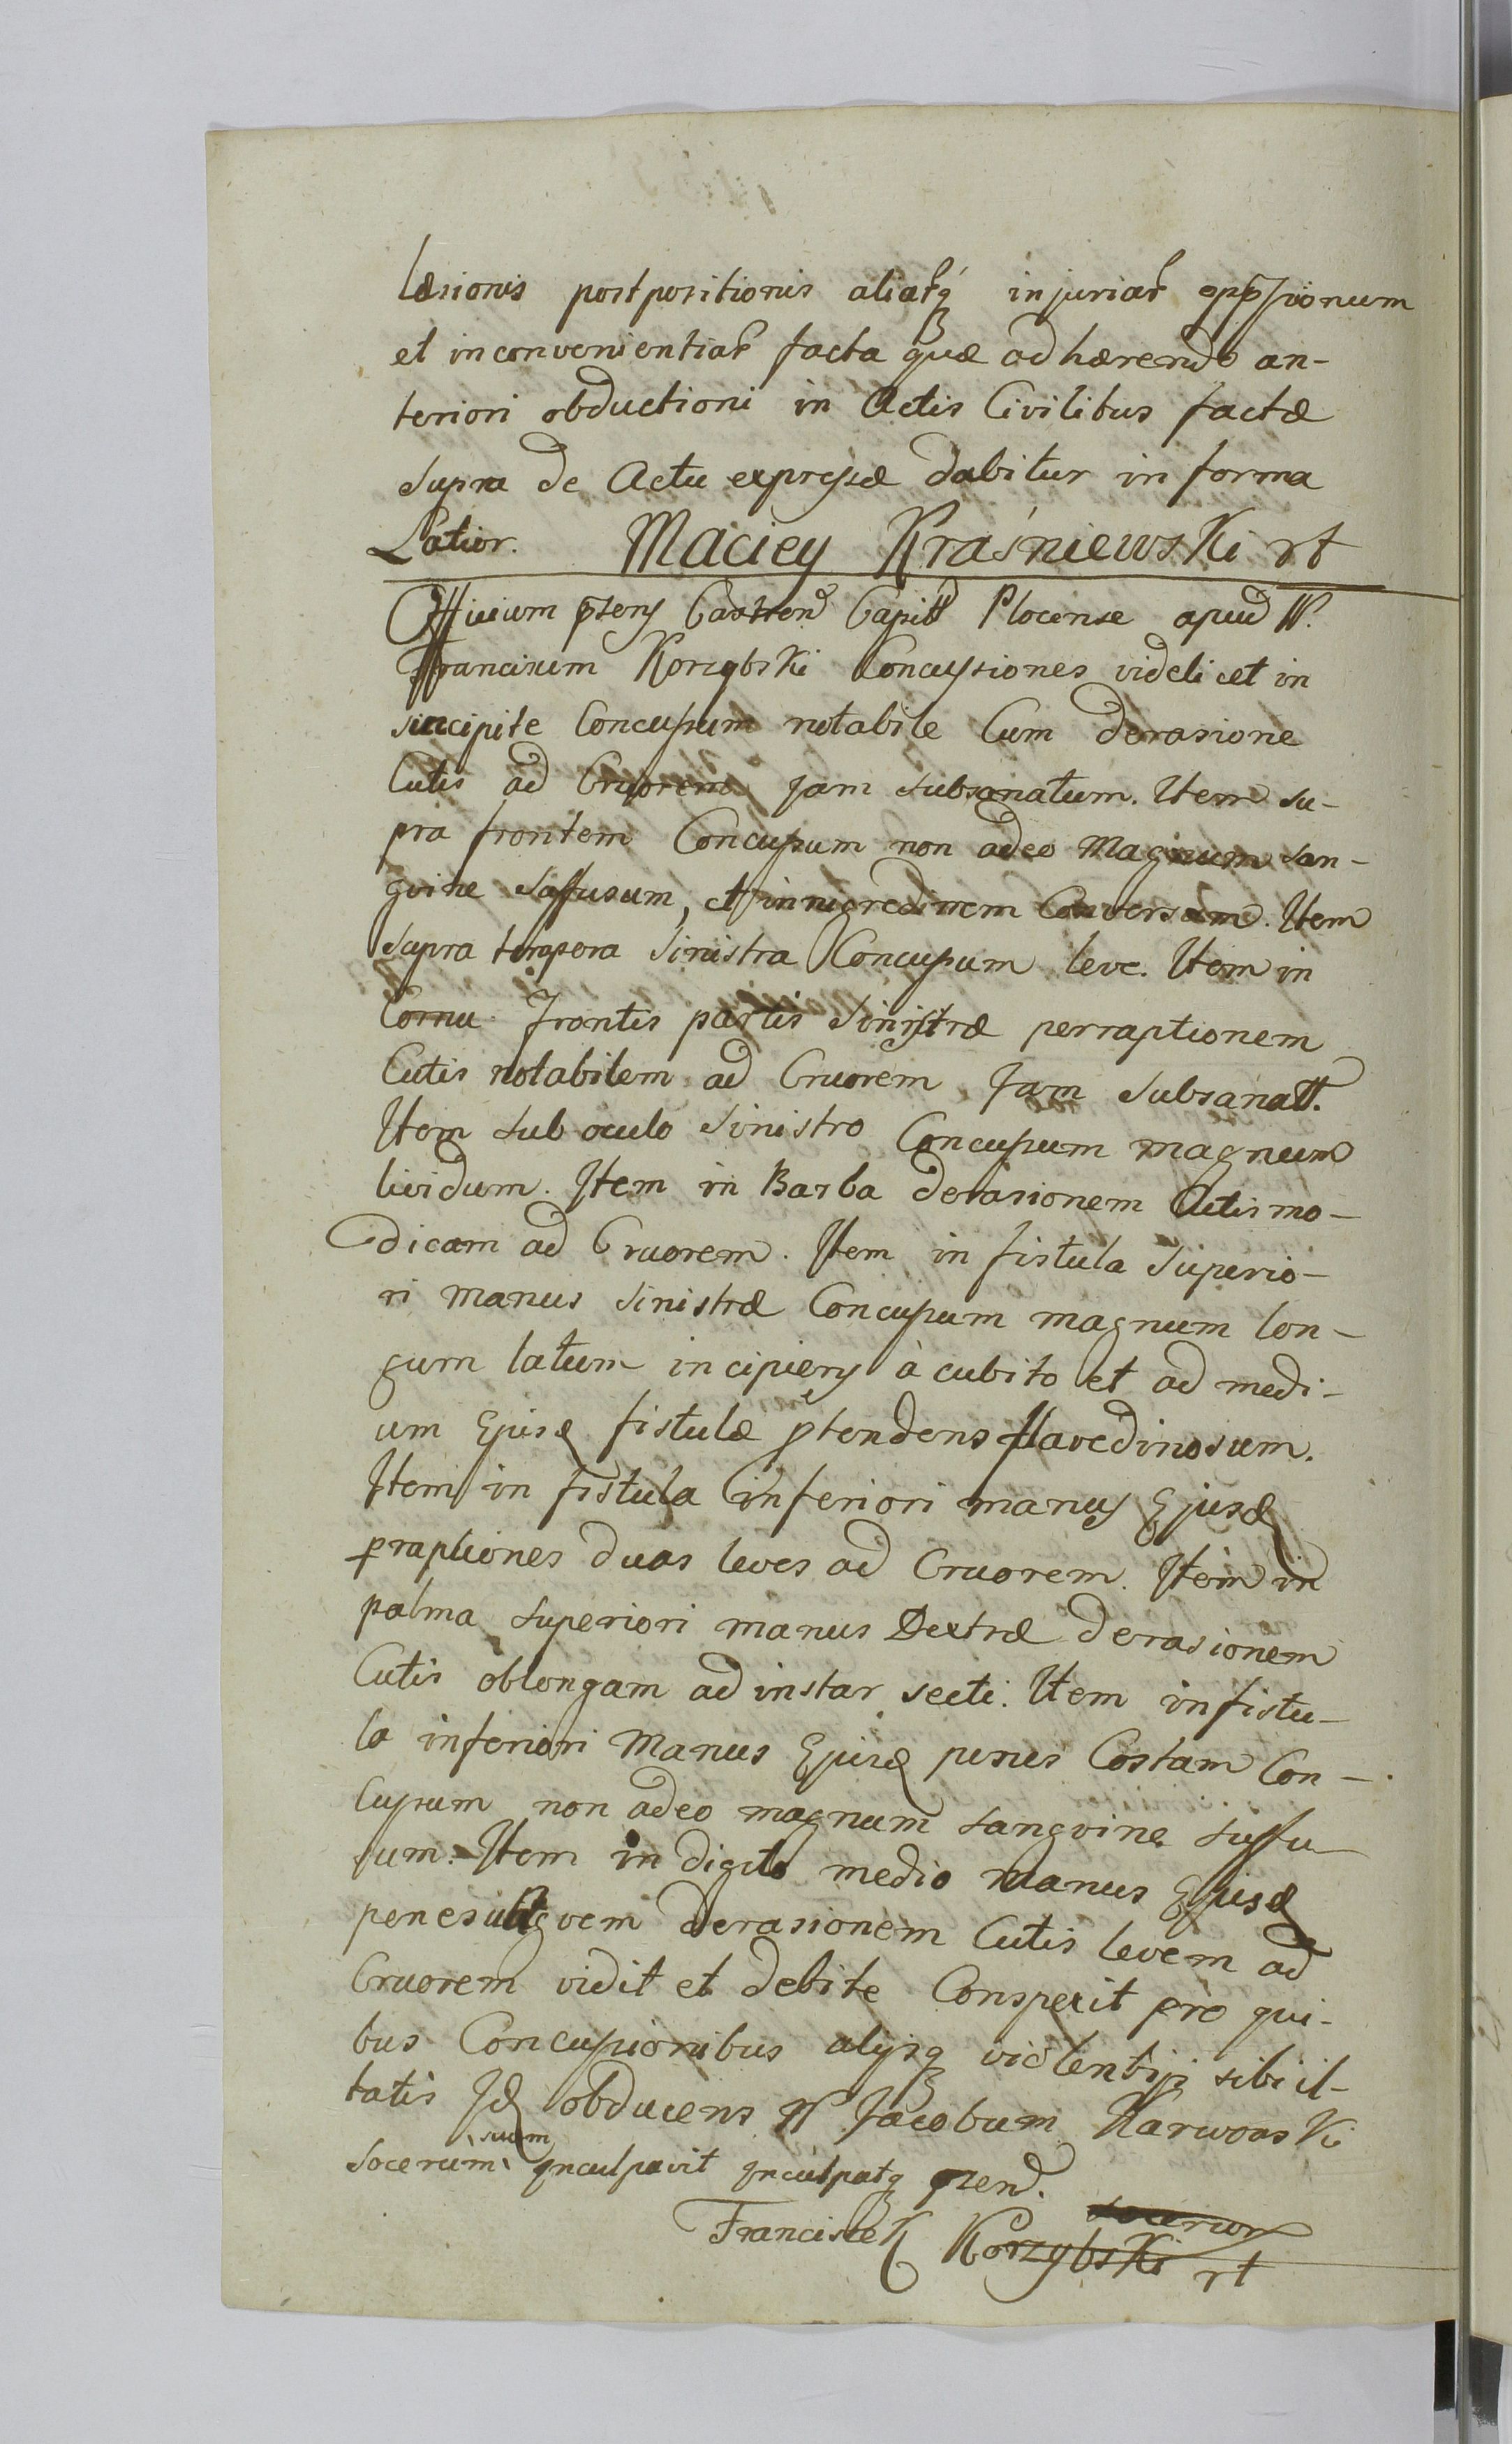 læsionis postpositionis aliarq injuriar opp̄ssionum
et inconvenientiar facta quæ adhærendo an-
teriori obductioni in Actis Civilibus factæ
supra de Actu expressæ dabitur in forma
Latior. Maciey Kraśniewski rt
Officium p̄sens Castren Capitt Plocense apud N.
Franciscum Korzybski Concussiones videlicet in
sincipite Concussum notabile Cum derasione
Cutis ad Cruorem jam subsanatum. Item su-
pra frontem Concussum non adeo magnum san-
gvine suffusum, et in nigredinem Conversum. Item
supra tempora sinistra Concussum leve. Item in
Cornu frontis partis sinistræ perraptionem
Cutis notabilem ad Cruorem jam subsanatt.
Item sub oculo sinistro Concussum magnum
lividum. Item in Barba derasionem Cutis mo-
dicam ad Cruorem. Item in fistula superio-
ri manus sinistræ Concussum magnum lon-
gum latum incipiens à cubito et ad medi-
um Ejusd fistulæ p̄tendens flavedinosum.
Item in fistula inferiori manus Ejusd
praptiones duas leves ad Cruorem. Item in
palma superiori manus Dextræ derasionem
Cutis oblongam ad instar secti. Item in fistu-
la inferiori manus Ejusd penes Costam Con-
cussum non adeo magnum sangvine suffu
sum. Item in digito medio manus Ejusd
penes ungvem derasionem Cutis levem ad
Cruorem vidit et debite Conspexit pro qui-
bus Concussionibus alysq violentijs sibi il-
latis Jd obducens N Jacobum Karwoski
socerum suum inculpavit inculpatq p̄sen.
Franciszek Korzybski rt